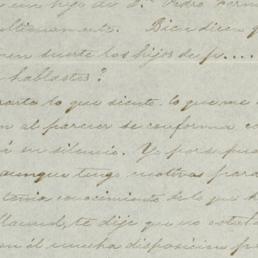 un hijo de D. Pedro
ultimamente. Bien dicen q
en suerte los hijos de p....
hablastes?
parte lo que siente, lo que me
n al parecer se conforma co
en silencio. Yo por
aunque tengo motivos para
tenia conocimiento de lo que h
Manuel, te dije que no estab
en él mucha disposicion